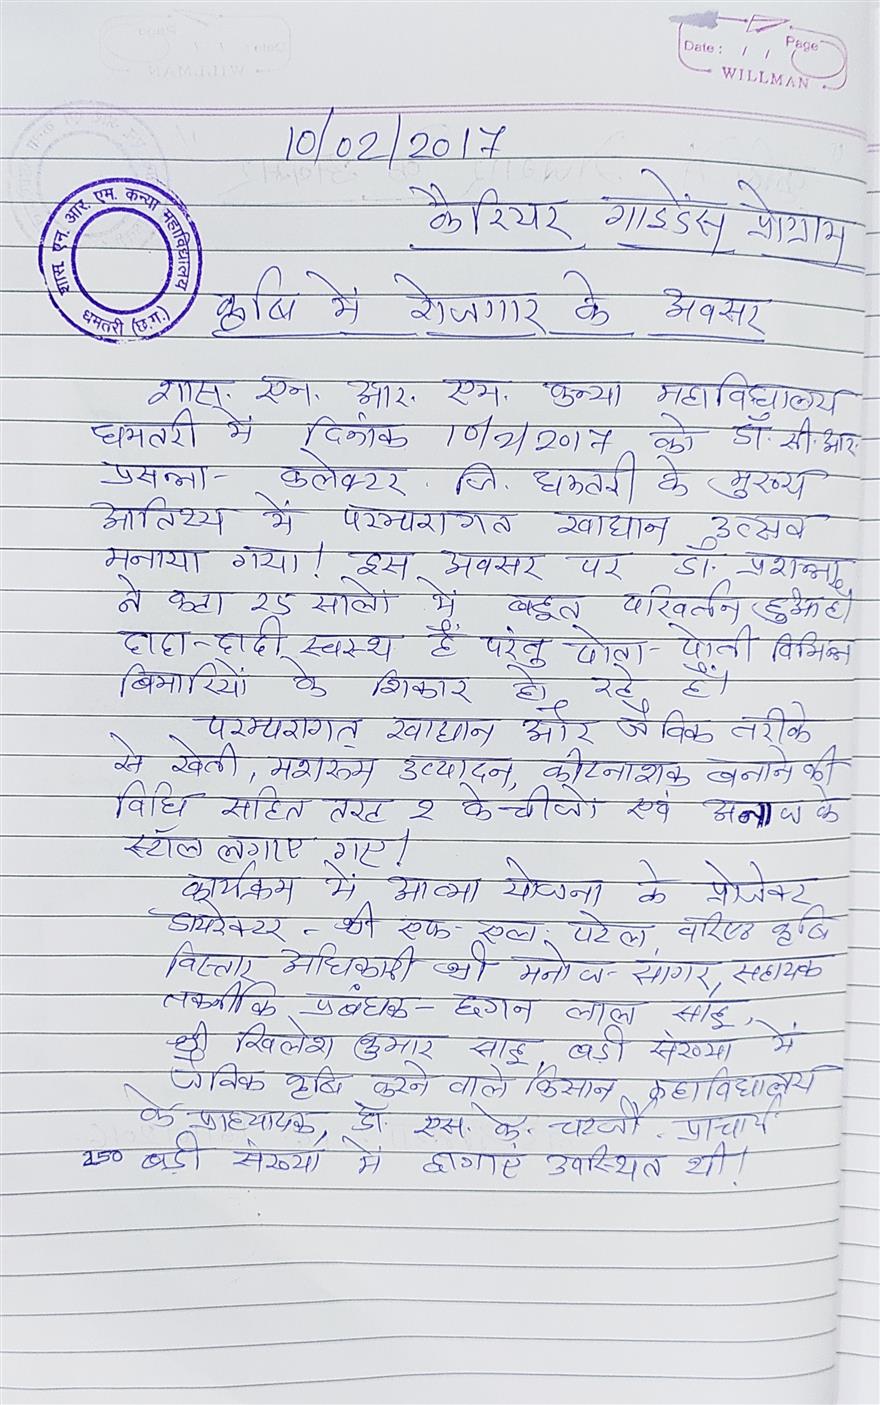 Date : / / Page
WILLMAN
10/02/2017
शास. एन. आर. एम. कन्या महाविद्यालय
धमतरी (छ.ग.)
कैरियर गाइडेंस प्रोग्राम
कृषि में रोजगार के अवसर
शास. एन. आर. एम. कन्या महाविद्यालय
धमतरी में दिनांक 10/2/2017 को डॉ. सी. आर.
प्रसन्ना - कलेक्टर . जि. धमतरी के मुख्य
आतिथ्य में परम्परागत खाद्यान उत्सव
मनाया गया! इस अवसर पर डॉ. प्रशन्ना
ने कहा 25 सालों में बहुत परिवर्तन हुआ है।
दादा-दादी स्वस्थ हैं परंतु पोता-पोती विभिन्न
बिमारियों के शिकार हो रहे हैं।
परम्परागत खाद्यान और जैविक तरीके
से खेती, मशरूम उत्पादन, कीटनाशक बनाने की
विधि सहित तरह 2 के चीजों एवं अनाज के
स्टॉल लगाए गए!
कार्यक्रम में आत्मा योजना के प्रोजेक्ट
डायरेक्टर - श्री एफ-एल. पटेल, वरिष्ठ कृषि
विस्तार अधिकारी श्री मनोज-सागर, सहायक
तकनीकि प्रबंधक - छगन लाल साहू,
श्री खिलेश कुमार साहू, बड़ी संख्या में
जैविक कृषि करने वाले किसान, महाविद्यालय
के प्राध्यापक, डॉ. एस. के. चटर्जी . प्राचार्य
250 बड़ी संख्या में छात्राएं उपस्थित थी!